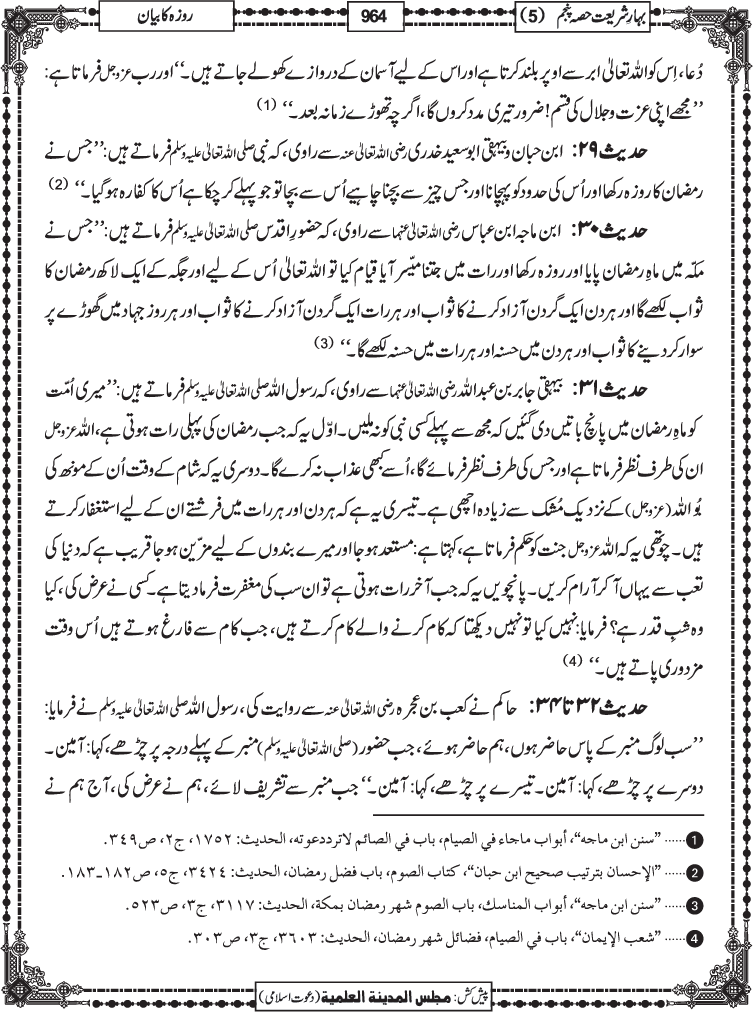 بہارِشریعت حصہ پنجم (5)
964
روزہ کا بیان
دُعا، اِس کو اللہ تعالیٰ ابر سے اوپر بلند کرتا ہے اور اس کے لیے آسمان کے دروازے کھولے جاتے ہیں۔‘‘ اور رب عزوجل فرماتا ہے:
’’مجھے اپنی عزت و جلال کی قسم! ضرور تیری مدد کروں گا، اگرچہ تھوڑے زمانہ بعد۔‘‘ (1)
حدیث ۲۹: ابن حبان و بیہقی ابو سعید خدری رضی اللہ تعالیٰ عنہ سے راوی، کہ نبی صلی اللہ تعالیٰ علیہ وسلم فرماتے ہیں: ’’جس نے
رمضان کا روزہ رکھا اور اُس کی حدود کو پہچانا اور جس چیز سے بچنا چاہیے اُس سے بچا تو جو پہلے کر چکا ہے اُس کا کفارہ ہوگیا۔‘‘ (2)
حدیث ۳۰: ابن ماجہ ابن عباس رضی اللہ تعالیٰ عنہما سے راوی، کہ حضورِ اقدس صلی اللہ تعالیٰ علیہ وسلم فرماتے ہیں: ’’جس نے
مکہ میں ماہِ رمضان پایا اور روزہ رکھا اور رات میں جتنا میسّر آیا قیام کیا تو اللہ تعالیٰ اُس کے لیے اور جگہ کے ایک لاکھ رمضان کا
ثواب لکھے گا اور ہر دن ایک گردن آزاد کرنے کا ثواب اور ہر رات ایک گردن آزاد کرنے کا ثواب اور ہر روز جہاد میں گھوڑے پر
سوار کر دینے کا ثواب اور ہر دن میں حسنہ اور ہر رات میں حسنہ لکھے گا۔‘‘ (3)
حدیث ۳۱: بیہقی جابر بن عبداللہ رضی اللہ تعالیٰ عنہما سے راوی، کہ رسول اللہ صلی اللہ تعالیٰ علیہ وسلم فرماتے ہیں: ’’میری اُمّت
کو ماہِ رمضان میں پانچ باتیں دی گئیں کہ مجھ سے پہلے کسی نبی کو نہ ملیں۔ اوّل یہ کہ جب رمضان کی پہلی رات ہوتی ہے، اللہ عزوجل
ان کی طرف نظر فرماتا ہے اور جس کی طرف نظر فرمائے گا، اُسے کبھی عذاب نہ کرے گا۔ دوسری یہ کہ شام کے وقت اُن کے مونھ کی
بُو اللہ (عزوجل) کے نزدیک مُشک سے زیادہ اچھی ہے۔ تیسری یہ ہے کہ ہر دن اور ہر رات میں فرشتے ان کے لیے استغفار کرتے
ہیں۔ چوتھی یہ کہ اللہ عزوجل جنت کو حکم فرماتا ہے، کہتا ہے: مستعد ہو جا اور میرے بندوں کے لیے مزّین ہو جا قریب ہے کہ دنیا کی
تعب سے یہاں آکر آرام کریں۔ پانچویں یہ کہ جب آخر رات ہوتی ہے تو ان سب کی مغفرت فرما دیتا ہے۔ کسی نے عرض کی، کیا
وہ شبِ قدر ہے؟ فرمایا: نہیں کیا تو نہیں دیکھتا کہ کام کرنے والے کام کرتے ہیں، جب کام سے فارغ ہوتے ہیں اُس وقت
مزدوری پاتے ہیں۔‘‘ (4)
حدیث ۳۲ تا ۳۴: حاکم نے کعب بن عجرہ رضی اللہ تعالیٰ عنہ سے روایت کی، رسول اللہ صلی اللہ تعالیٰ علیہ وسلم نے فرمایا:
’’سب لوگ منبر کے پاس حاضر ہوں، ہم حاضر ہوئے، جب حضور (صلی اللہ تعالیٰ علیہ وسلم) منبر کے پہلے درجہ پر چڑھے، کہا: آمین۔
دوسرے پر چڑھے، کہا: آمین۔ تیسرے پر چڑھے، کہا: آمین۔‘‘ جب منبر سے تشریف لائے، ہم نے عرض کی، آج ہم نے
1 ...... ”سنن ابن ماجه“، أبواب ماجاء في الصيام، باب في الصائم لاترددعوته، الحديث: ١٧٥٢، ج٢، ص٣٤٩.
2 ...... ”الإحسان بترتيب صحيح ابن حبان“، كتاب الصوم، باب فضل رمضان، الحديث: ٣٤٢٤، ج٥، ص١٨٢ـ١٨٣.
3 ...... ”سنن ابن ماجه“، أبواب المناسك، باب الصوم شهر رمضان بمكة، الحديث: ٣١١٧، ج٣، ص٥٢٣.
4 ...... ”شعب الإيمان“، باب في الصيام، فضائل شهر رمضان، الحديث: ٣٦٠٣، ج٣، ص٣٠٣.
پیش کش: مجلس المدینة العلمیة (دعوت اسلامی)